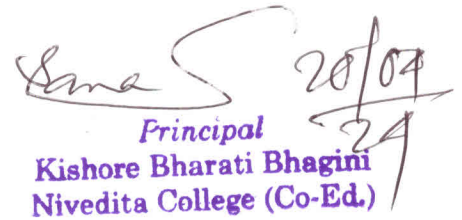 28/04
24
Principal
Kishore Bharati Bhagini
Nivedita College (Co-Ed.)